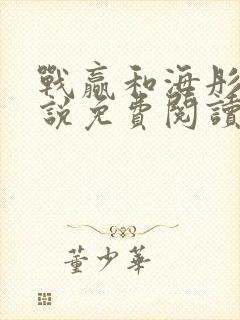 戰贏和海彤
說免費閱讀
董少華